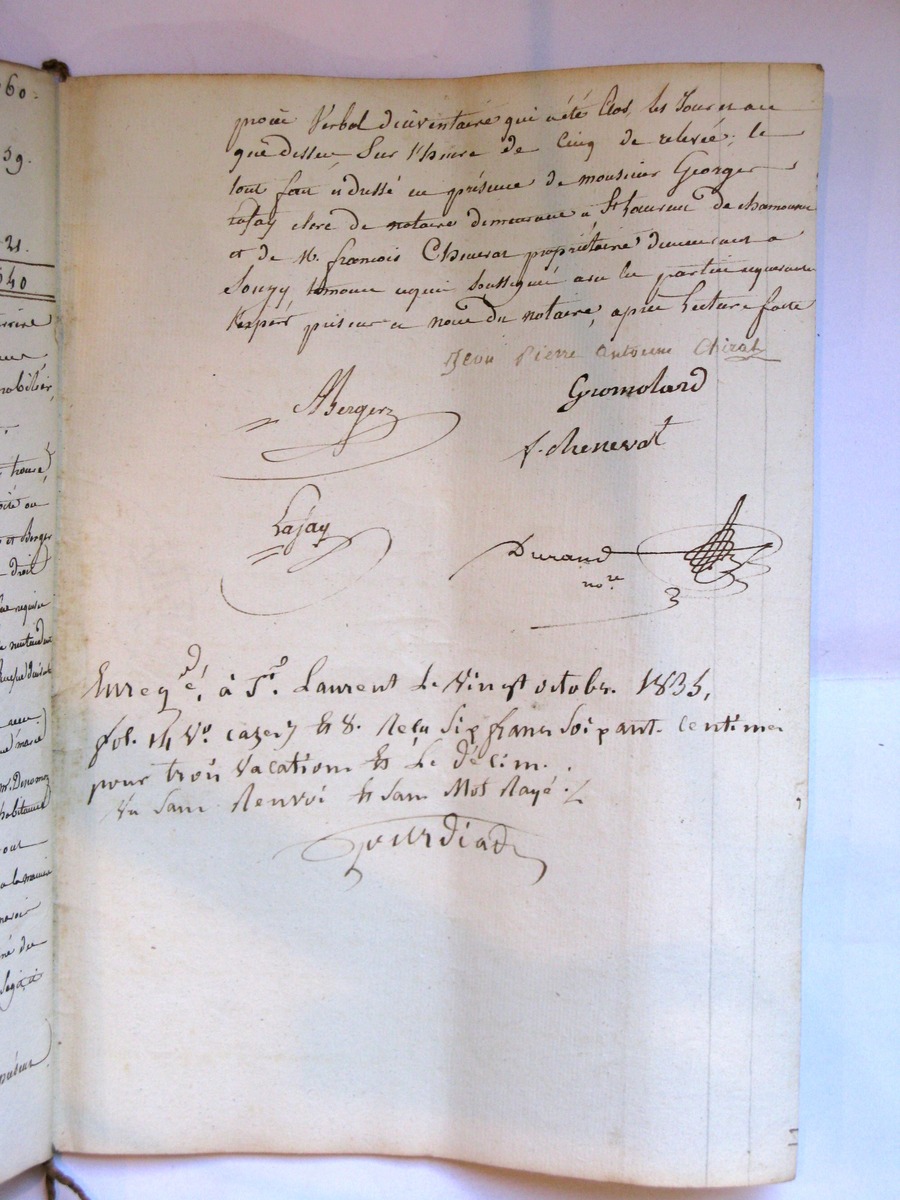 60.
59.
21.
640
procès Verbal d'inventaire qui a été Clos, les Jour et an
que dessus, Sur l'heure de Cinq de relevée; le
tout fait et dressé en présence de monsieur George
Lafay clerc de notaire demeurant à St Laurent de chamousset
et de M. françois Chenevat propriétaire demeurant a
Souzy témoins requis soussignés avec les parties requérantes
l'expert priseur et nous dit notaire, après lecture faite
Jean Pierre Antoine Chirat
ABerger
Gromolard
f. chenevat
Lafay
Durand
nore
Enregé, à St. Laurent Le Vingt octobre 1835,
fol. 14 Vo. case 7 Et 8. Reçu Six francs Soixante centimes
pour trois Vacations Et Le Décime.
Vu Sans Renvoi Et Sans Mot Rayé ./.
Gourdiat
et Berger
droit